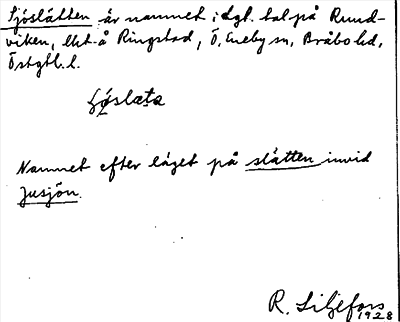 Sjöslätten är namnet i dgl. tal på Rund-
viken, lht å Ringstad, Ö. Eneby sn, Bråbo hd,
Östgtl. l.
Namnet efter läget på slätten invid
Jusjön.
R. Liljefors
1928